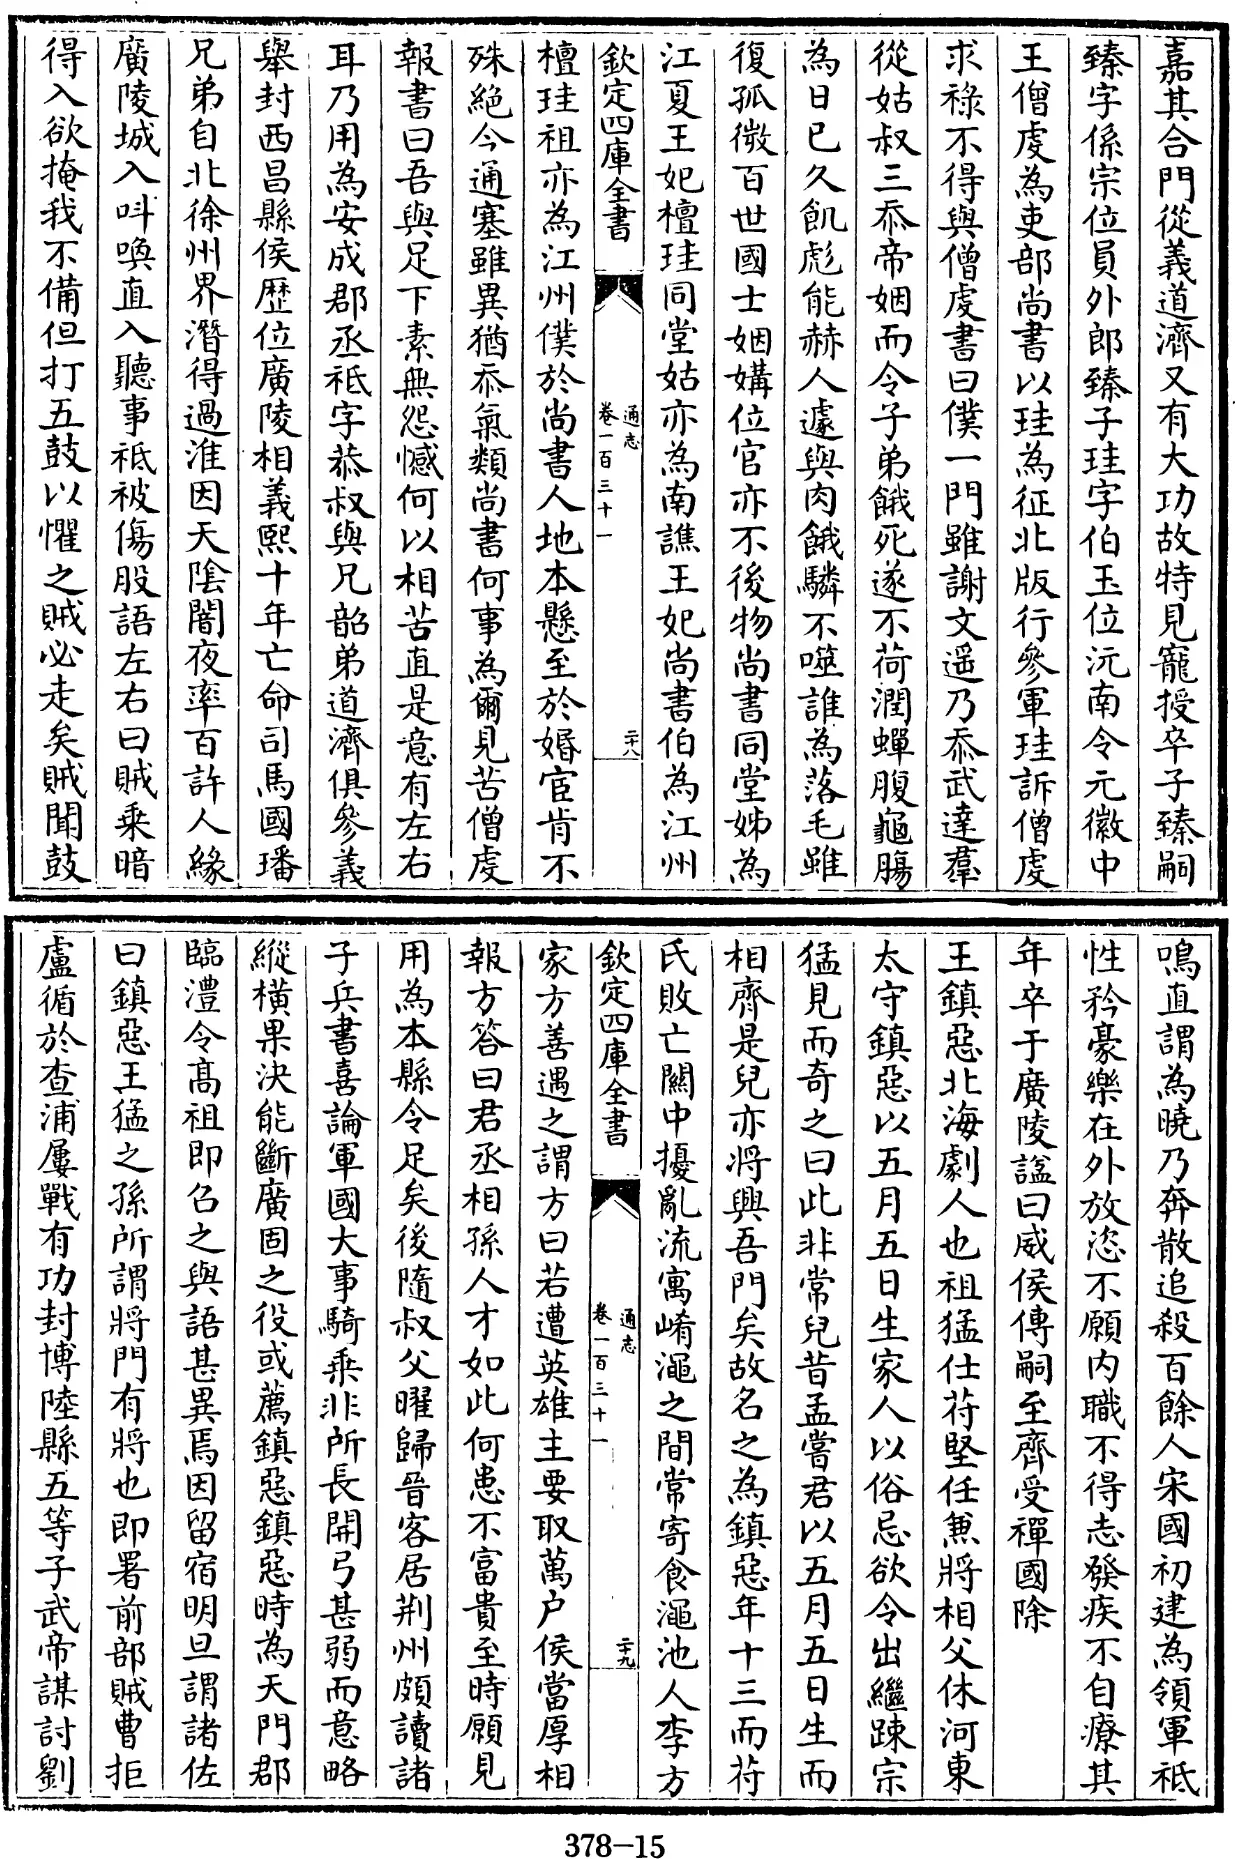 嘉其合門從義道濟又有大功故特見寵授卒子臻嗣
臻字係宗位員外郎臻子珪字伯玉位沅南令元徽中
王僧虔為吏部尚書以珪為征北版行參軍珪訴僧虔
求祿不得與僧虔書曰僕一門雖謝文遥乃忝武達羣
從姑叔三忝帝姻而令子弟餓死遂不荷潤蟬腹龜腸
為日已久飢彪能赫人遽與肉餓驎不噬誰為落毛雖
復孤微百世國士姻媾位官亦不後物尚書同堂姊為
江夏王妃檀珪同堂姑亦為南譙王妃尚書伯為江州
欽定四庫全書
通志
卷一百三十一
二十八
檀珪祖亦為江州僕於尚書人地本懸至於婚宦肯不
殊絶今通塞雖異猶忝氣類尚書何事為爾見苦僧虔
報書曰吾與足下素無怨憾何以相苦直是意有左右
耳乃用為安成郡丞祗字恭叔與兄韶弟道濟俱參義
舉封西昌縣侯歴位廣陵相義熙十年亡命司馬國璠
兄弟自北徐州界潛得過淮因天陰闇夜率百許人緣
廣陵城入呌喚直入聽事祗被傷股語左右曰賊乗暗
得入欲掩我不備但打五鼓以懼之賊必走矣賊聞鼓
鳴直謂為曉乃奔散追殺百餘人宋國初建為領軍祗
性矜豪樂在外放恣不願内職不得志發疾不自療其
年卒于廣陵諡曰威侯傳嗣至齊受禪國除
王鎮惡北海劇人也祖猛仕苻堅任兼將相父休河東
太守鎮惡以五月五日生家人以俗忌欲令出繼踈宗
猛見而奇之曰此非常兒昔孟嘗君以五月五日生而
相齊是兒亦將興吾門矣故名之為鎮惡年十三而苻
氏敗亡闗中擾亂流寓崤澠之間常寄食澠池人李方
欽定四庫全書
通志
卷一百三十一
二十九
家方善遇之謂方曰若遭英雄主要取萬户侯當厚相
報方答曰君丞相孫人才如此何患不富貴至時願見
用為本縣令足矣後隨叔父曜歸晉客居荆州頗讀諸
子兵書喜論軍國大事騎乗非所長開弓甚弱而意略
縱横果決能斷廣固之役或薦鎮惡鎮惡時為天門郡
臨澧令髙祖即召之與語甚異焉因留宿明旦謂諸佐
曰鎮惡王猛之孫所謂將門有將也即署前部賊曹拒
盧循於查浦屢戰有功封博陸縣五等子武帝謀討劉
378-15